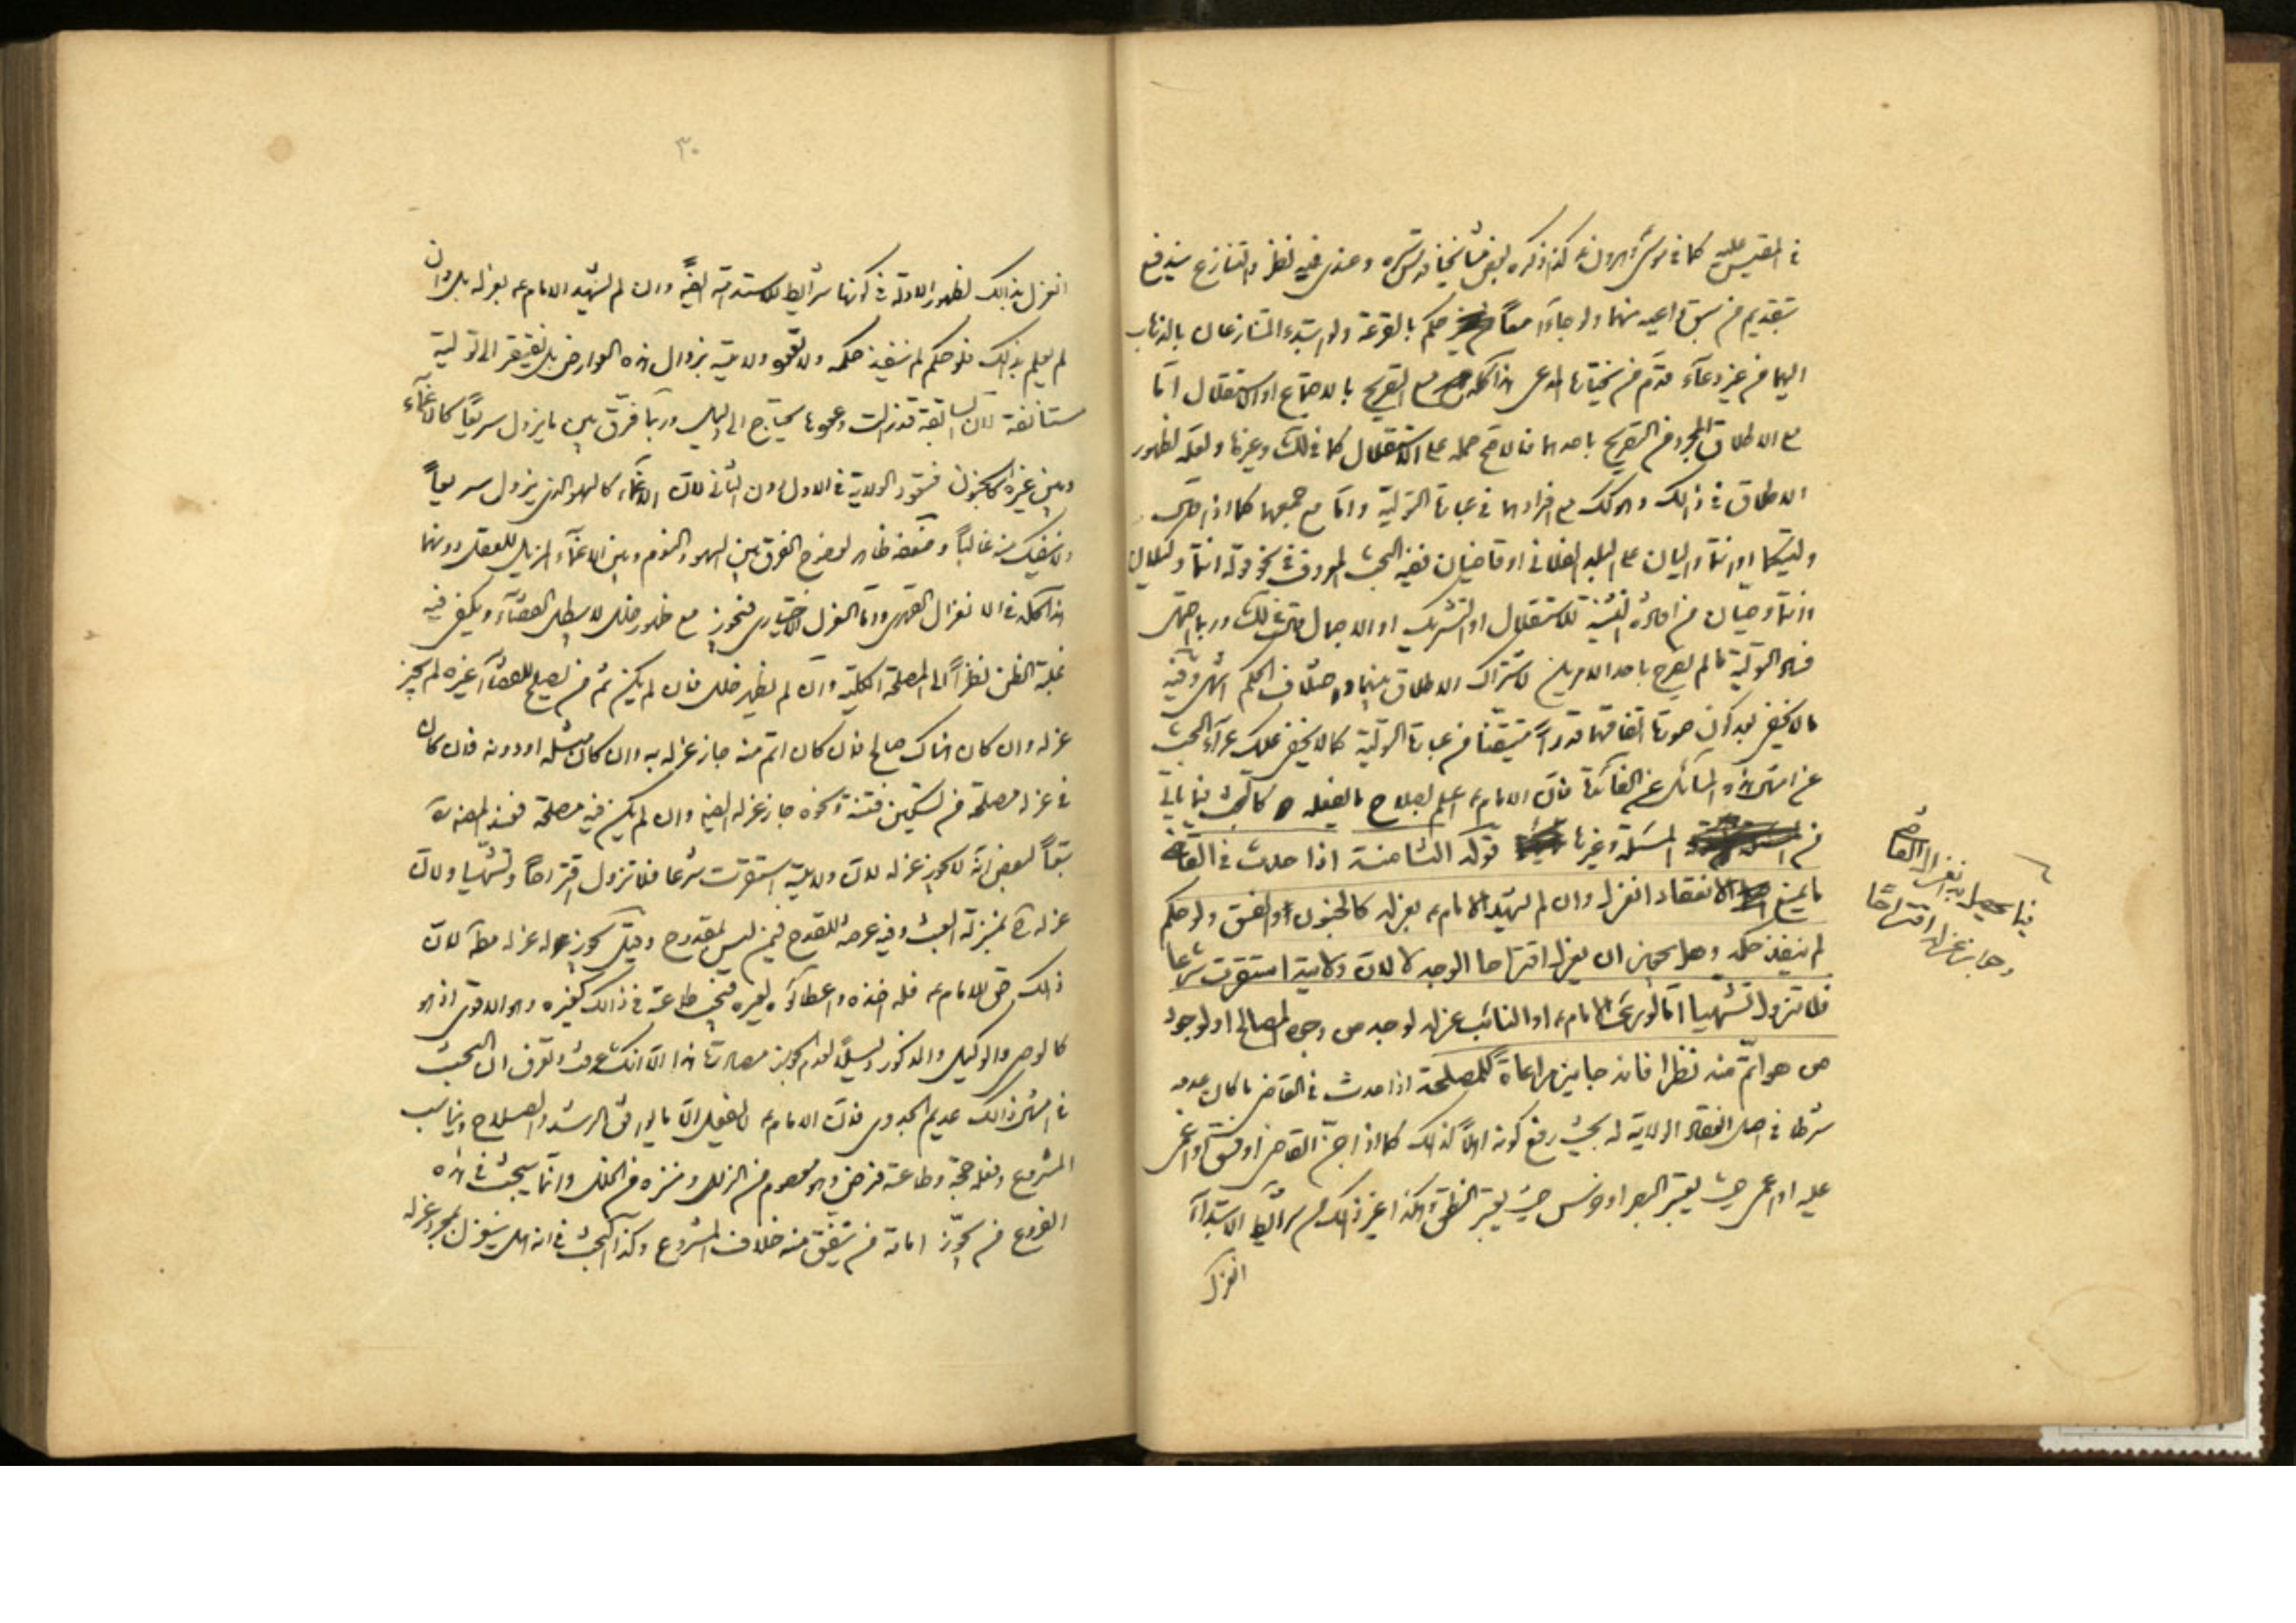 في المقيس عليه كما في كذا ذكره بعض مشايخنا قدس سره وعندي فيه نظر والتنازع يندفع
بتقديم من سبق داعيه منهما ولو جاءا معاً حكم بالقرعة ولو ابتدء المتنازعان بالذهاب
اليهما من غير دعاء قدّم من يختاره المدعي هذا كله مع التصريح بالاجتماع او الاستقلال امّا
مع الاطلاق المجرد من التصريح باحدهما فالاصح حمله على الاستقلال كما في لك وغيرها ولعله لظهور
الاطلاق في ذلك وهو كك مع افرادهما في عبارة التولية وامّا مع جمعهما كما اذا قال
وليتكما او انتما واليان على البلد الفلاني او قاضيان ففيه البحث المعروف في نحو قوله انتما وكيلان
وانتما وصيان من افادة التثنية للاستقلال او التشريك او الاجمال
التولية ما لم يصرح باحد الامرين لاشتراك الاطلاق بينهما واختلاف الحكم انتهى وفيه
ما لا يخفى بعد كون صورة اتفاقهما قدراً متيقناً من عبارة التولية كما لا يخفى عليك عراء البحث
عن امثال هذه المسائل عن الفائدة فان الامام ع اعلم بصلاح ما يفعله كالبحث فيما ياتي
من المسئلة وغيرها قوله الثامنة اذا حدث في القاضي
ما يمنع الانعقاد انعزل وان لم يشهد الامام ع بعزله كالجنون او الفسق ولو حكم
لم ينفذ حكمه وهل يجوز ان يعزل اقتراحا الوجه لا لان ولايته استقرت شرعا
فلا تزول تشهيا امّا لو رأى الامام ع او النائب عزله لوجه من وجوه المصالح او لوجود
من هو اتمّ منه نظرا فانه جايز مراعاة للمصلحة اذا حدث في القاضي ما كان عدمه
شرطا في اصل انعقاد الولاية له بحيث رفع كونه اهلاً كذلك كما اذا جنّ القاضي او فسق او اغمي
عليه او عمي حيث يعتبر البصر او خرس حيث يعتبر النطق وهكذا غير ذلك من شرائط الابتداء
انعزل
فيما يحصل به انعزال القاضي
وجواز عزله اقتراحًا
٣٠
انعزل بذلك لظهور الادلة في كونها شرائط للاستدامة ايضاً وان لم يشهد الامام ع بعزله بل وان
لم يعلم بذلك فلو حكم لم ينفذ حكمه ولا تعود ولايته بزوال هذه العوارض بل يفتقر الى تولية
مستانفة لان السابقة قد زالت وعودها يحتاج الى دليل وربما فرّق بين ما يزول سريعًا كالاغماء
وبين غيره كالجنون فتعود الولاية في الاول دون الثاني لان الاغماء كالسهو الذي يزول سريعاً
ولا ينفك منه غالباً وضعفه ظاهر لوضوح الفرق بين السهو والنوم وبين الاغماء المزيل للعقل دونهما
هذا كله في الانعزال القهري وامّا العزل الاختياري فيجوز مع ظهور خلل لا يبطل القضاء ويكفي فيه
غلبة الظن نظراً الى المصلحة الكلية وان لم يظهر خلل فان لم يكن ثم من يصلح للقضاء غيره لم يجز
عزله وان كان هناك صالح فان كان اتم منه جاز عزله به وان كان مثله او دونه فان كان
في عزله مصلحة من تسكين فتنة ونحوه جاز عزله ايضا وان لم يكن فيه مصلحة فعند المصنف ره
تبعاً لبعض انّه لا يجوز عزله لان ولايته استقرت شرعا فلا تزول اقتراحاً وتشهّيا ولان
عزله ح بمنزلة العبث وفيه عرضة للقدح فيمن ليس بمقدوح وقيل يجوز له عزله مطلقاً لان
ذلك حق للامام ع فله اخذه واعطاؤه لغيره فيجب طاعته في ذلك كغيره وهو الاقوى اذ هو
كالوصي والوكيل والمذكور دليلاً لعدم الجواز مصادرة هذا الا انك عرفت وتعرف ان البحث
في امثال ذلك عديم الجدوى فان الامام ع لا يفعل الّا ما يوافق الرشد والصلاح ويناسب
المشروع وفعله حجّة وطاعته فرض وهو معصوم من الزلل ومنزه من الخلل وانّما يبحث في هذه
الفروع من يجوّز امامة من يتفق منه خلاف المشروع وكذا البحث في انه هل ينعزل بمجرد عزله